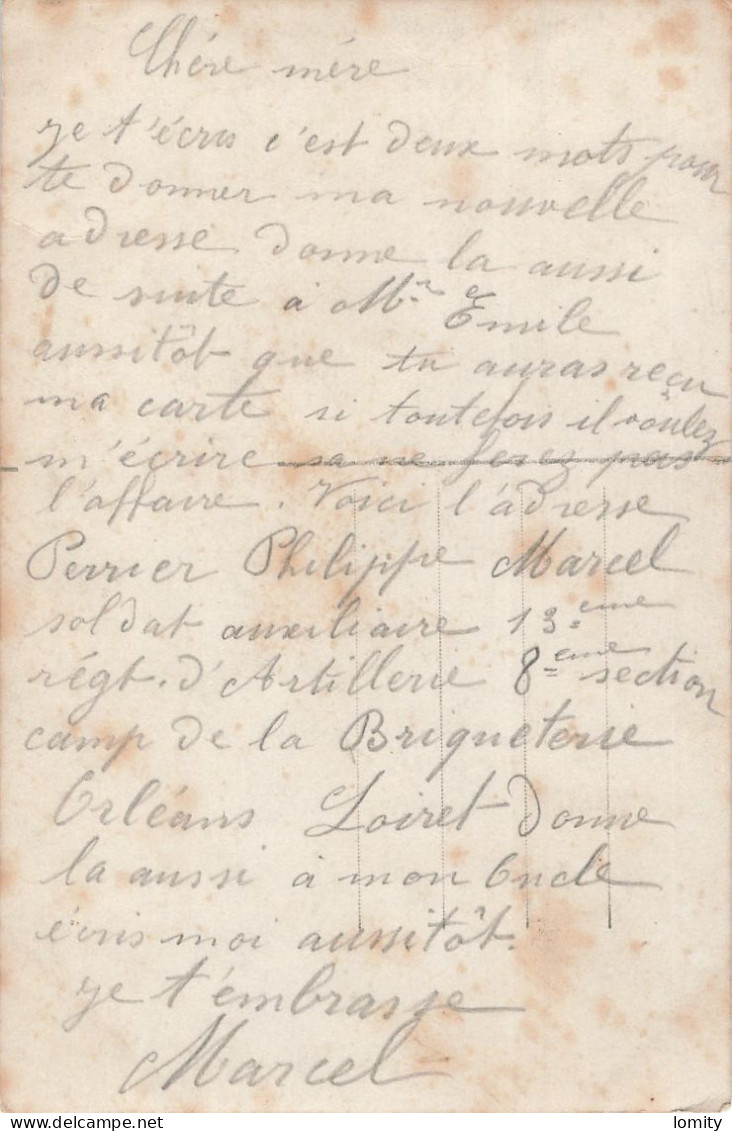 Chére mére
je t'écris c'est deux mots pour
te donner ma nouvelle
adresse donne la aussi
de suite à Mr Emile
aussitôt que tu auras reçu
ma carte si toutefois il voulez
m'écrire sa ne ferez pas
l'affaire. Voici l'adresse
Perrier Philippe Marcel
soldat auxiliaire 13eme
régt. d'Artillerie 8eme section
camp de la Briqueterie
Orléans Loiret donne
la aussi à mon Oncle
écris moi aussitôt.
je t'embrasse
Marcel
lomity